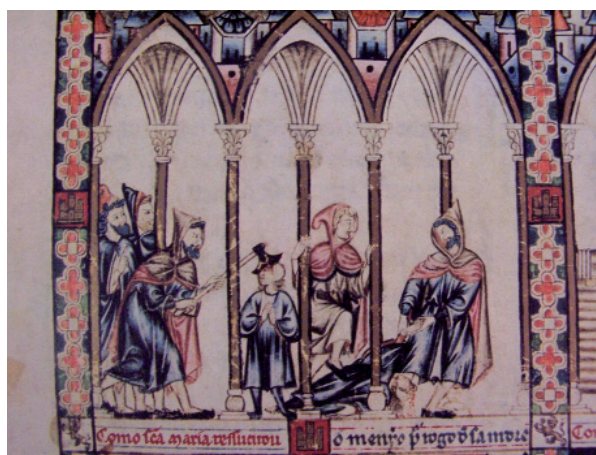 Como sc̄a maria ressucitou o menỹo p̄ rogo d̄ sa madre